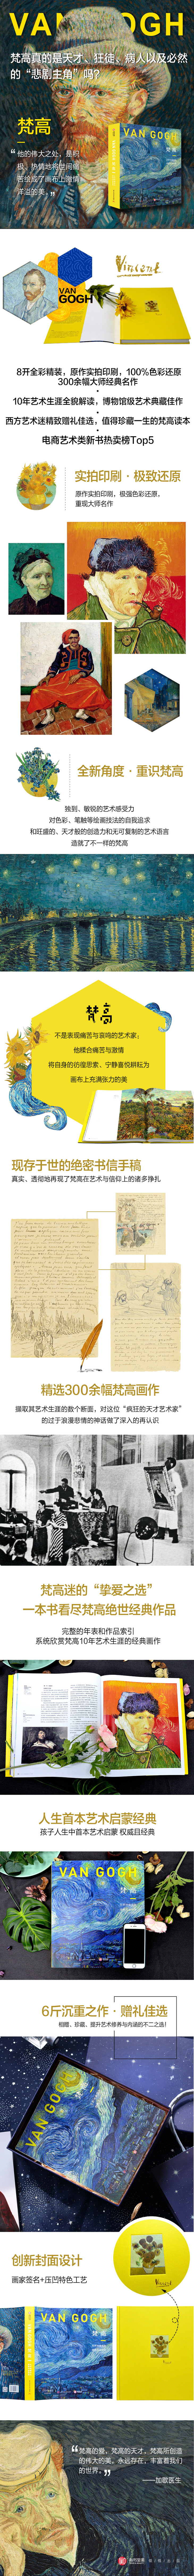 VAN GOGH
梵高真的是天才、狂徒、病人以及必然
的“悲剧主角”吗？
梵高
“他的伟大之处，是积
极、热情地将世间痛
苦绘成了画布上激情
洋溢的美。”
VAN GOGH
梵高
Vincent
VAN
GOGH
8开全彩精装，原作实拍印刷，100%色彩还原
300余幅大师经典名作
10年艺术生涯全貌解读，博物馆级艺术典藏佳作
西方艺术迷精致赠礼佳选，值得珍藏一生的梵高读本
电商艺术类新书热卖榜Top5
实拍印刷·极致还原
原作实拍印刷，极强色彩还原，
重现大师名作
全新角度·重识梵高
独到、敏锐的艺术感受力
对色彩、笔触等绘画技法的自我追求
和旺盛的、天才般的创造力和无可复制的艺术语言
造就了不一样的梵高
梵高
不是表现痛苦与哀鸣的艺术家；
他糅合痛苦与激情
将自身的彷徨思索、宁静喜悦耕耘为
画布上充满张力的美
现存于世的绝密书信手稿
真实、透彻地再现了梵高在艺术与信仰上的诸多挣扎
精选300余幅梵高画作
撷取其艺术生涯的数个断面，对这位“疯狂的天才艺术家”
的过于浪漫悲情的神话做了深入的再认识
梵高迷的“挚爱之选”
一本书看尽梵高绝世经典作品
完整的年表和作品索引
系统欣赏梵高10年艺术生涯的经典画作
人生首本艺术启蒙经典
孩子人生中首本艺术启蒙 权威且经典
VAN GOGH
梵高
6斤沉重之作·赠礼佳选
相赠、珍藏、提升艺术修养与内涵的不二之选！
VAN GOGH
创新封面设计
画家签名+压凹特色工艺
Vincent
VAN GOGH
梵高
“梵高的爱，梵高的天才，梵高所创造
的伟大的美，永远存在，丰富着我们
的世界。”
——加歇医生